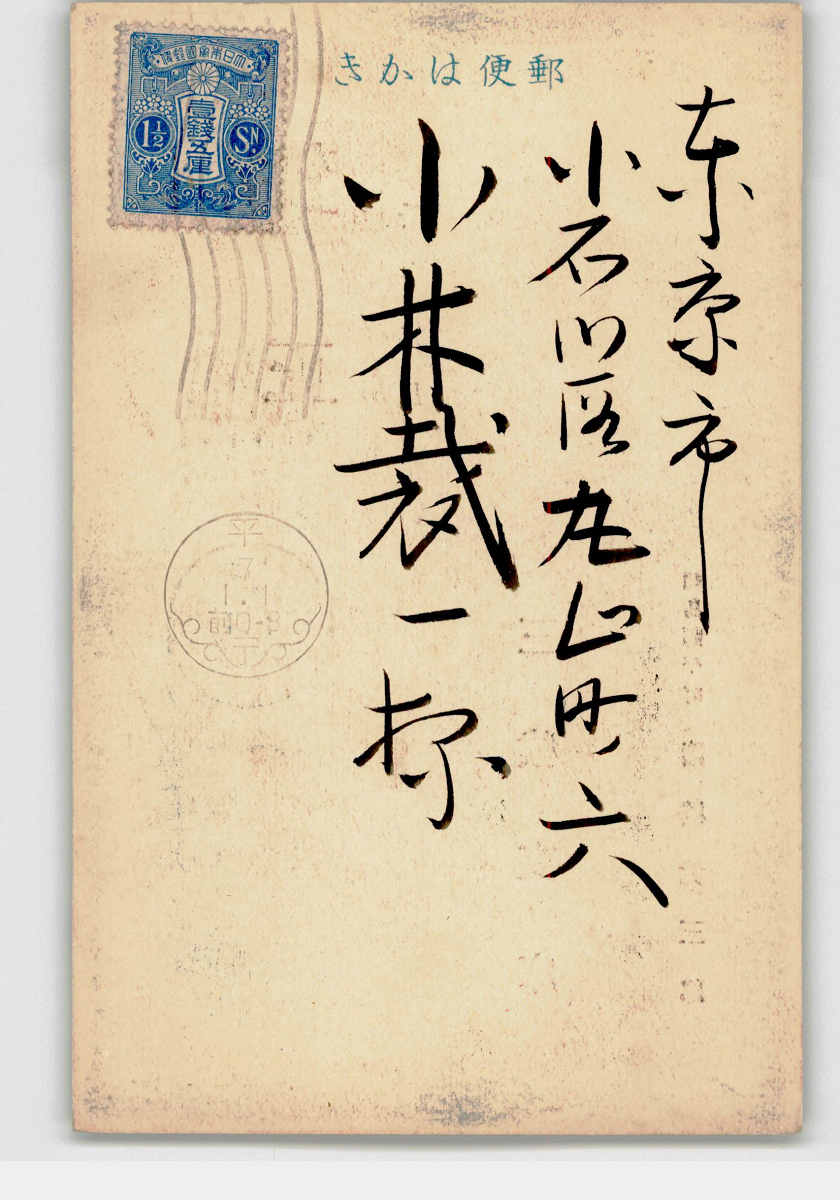 郵便はかき
大日本帝國郵便
壹錢五厘
1½ SN.
東京市
小石川区丸山町六
小林裁一様
平
7
1.1
前0-8